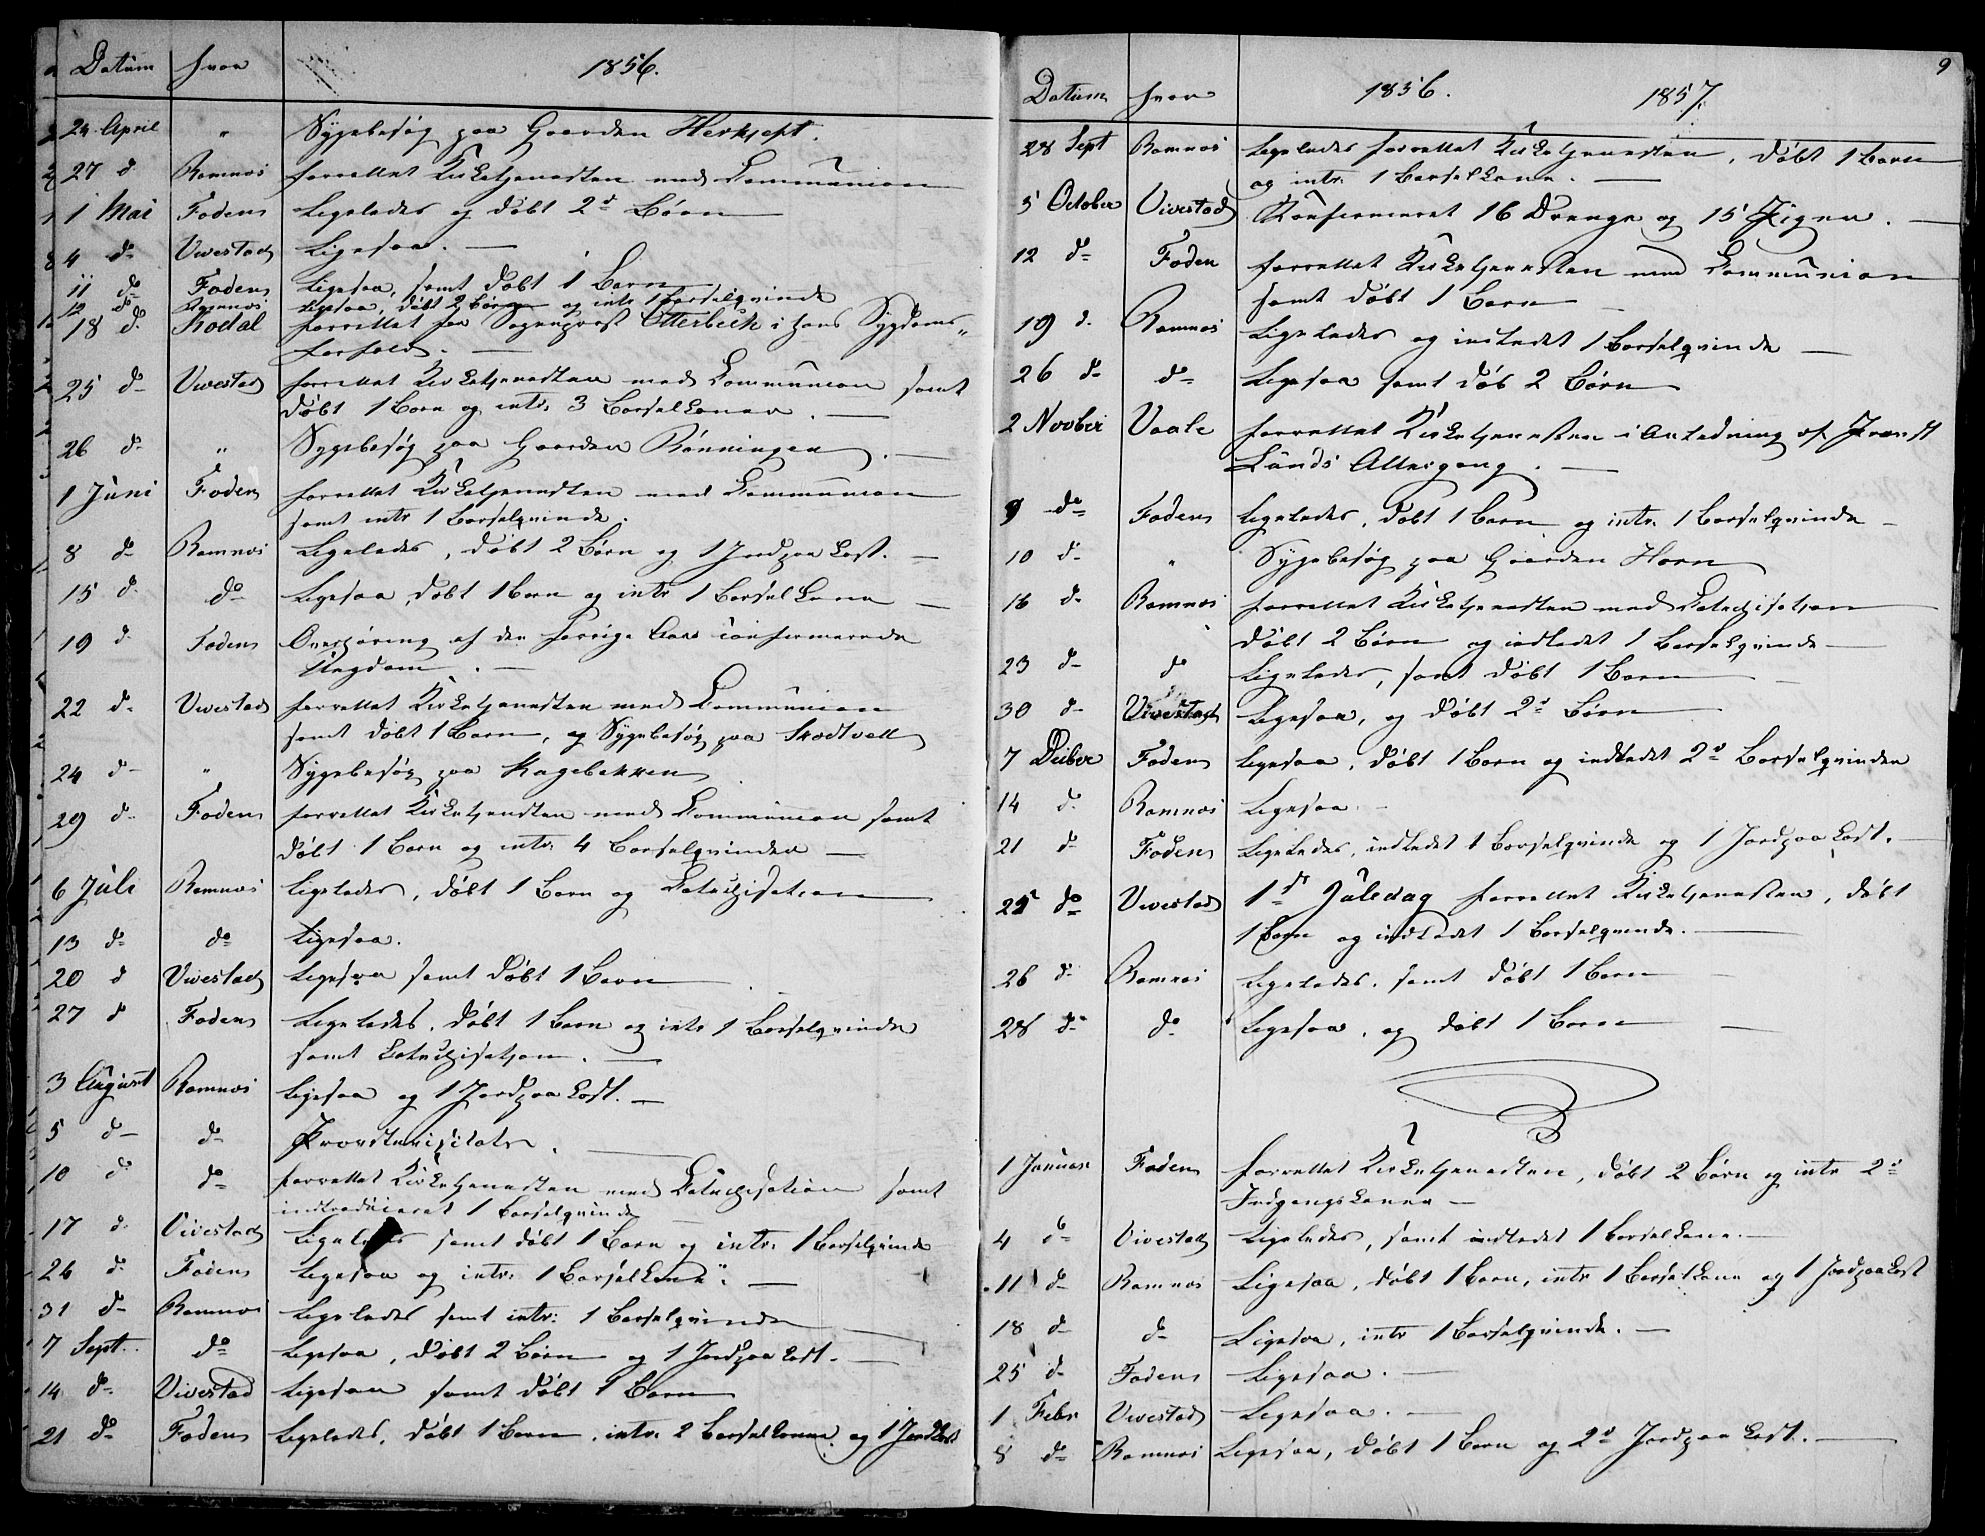 Datum hvor 1856.
24 April " Sygebesøg paa Gaarden Herkjept.
27 d Ramnæs forrettet Kirketjenesten med Communion
1 Mai Fodens Ligeledes og døbt 2de Børn
4 d- Vivestad Ligesaa.
11 do Fodens Ligesaa, samt døbt 1 Barn
12 do Ramnæs Ligesaa, døbt 2 Børn og intr 1 Barselqvinde
18 d. Kodal forrettet for Sogneprest Otterbech i hans Sygdoms-
forfald.
25 d- Vivestad forrettet Kirketjenesten med Communion samt
døbt 1 Barn og intr. 3 Barselkoner.
26 d- " Sygebesøg paa Gaarden Rønningen.
1 Juni Fodens forrettet Kirketjenesten med Communion
samt intr 1 Barselqvinde.
8 d- Ramnæs Ligeledes, døbt 2 Børn og 1 Jordpaakast.
15 d. do Ligesaa, døbt 1 Barn og intr 1 Barselkone
19 d. Fodens Overhøring af den forrige Aars confirmerede
Ungdom.
22 d- Vivestad forrettet Kirketjenesten med Communion
samt døbt 1 Barn, og Sygebesøg paa
24 d- " Sygebesøg paa Kagebakken
29 d- Fodens forrettet Kirketjenesten med Communion samt
døbt 1 Barn og intr. 4 Barselqvinder
6 Juli Ramnæs Ligeledes, døbt 1 Barn og Catechisation
13 d- do Ligesaa.
20 d Vivestad Ligesaa samt døbt 1 Barn
27 d Fodens Ligeledes, døbt 1 Barn og intr 1 Barselqvinde
samt Catechisation.
3 August Ramnæs Ligesaa og 1 Jordpaakast.
5 d- d- Provstevisitats.
10 d- d- forrettet Kirketjenesten med Catechisation samt
introduceret 1 Barselqvinde
17 d- Vivestad Ligeledes samt døbt 1 Barn og intr. 1 Barselqvinde
26 d- Fodens Ligesaa og intr. 1 Barselkone.
31 d- Ramnæs Ligeledes samt intr: 1 Barselqvinde
7 Sept. do Ligesaa, døbt 2 Børn og 1 Jordpaakast.
14 d- Vivestad Ligesaa samt døbt 1 Barn
21 do Fodens Ligeledes, døbt 1 Barn, intr. 2 Barselkoner og 1 Jordkast
9
Datum hvor 1856. 1857.
28 Sept Ramnæs Ligeledes forrettet Kirketjenesten, døbt 1 Barn
og intr. 1 Barselkone.
5 October Vivestad Konfirmeret 16 Drenge og 15 Piger.
12 d- Foden forrettet Kirketjenesten med Communion
samt døbt 1 Barn
19 d. Ramnæs Ligeledes og indledet 1 Barselqvinde
26 d- d- Ligesaa samt døb 2 Børn
2 Novber Vaale forrettet Kirketjenesten i Anledning af Provst
Lunds Altergang.
9 do Fodens Ligeledes, døbt 1 Barn og intr. 1 Barselqvinde
10 d- " Sygebesøg paa Gaarden Horn
16 d- Ramnæs forrettet Kirketjenesten med Catechisation
døbt 2 Børn og indledet 1 Barselqvinde
23 d- do Ligeledes, samt døbt 1 Barn
30 d- Vivestad Ligesaa, og døbt 2de Børn
7 Deiber Fodens Ligesaa, døbt 1 Barn og indledet 2de Barselqvinder
14 d. Ramnæs Ligesaa.
21 d- Fodens Ligeledes, indledet 1 Barselqvinde og 1 Jordpaakast.
25 do Vivestad 1ste Juledag forrettet Kirketjenesten, døbt
1 Barn og indledet 1 Barselqvinde.
26 d- Ramnæs Ligeledes, samt døbt 1 Barn
28 d- do Ligesaa, og døbt 1 Barn
1 Januar Fodens forrettet Kirketjenesten, døbt 2 Børn og intr 2de
Indgangskoner
4 d- Vivestad Ligeledes, samt indledet 1 Barselkone.
11 d- Ramnæs Ligesaa, døbt 1 Barn, intr 1 Barselkone og 1 Jordpaakast
18 d- d- Ligesaa, intr 1 Barselqvinde.
25 d- Fodens Ligesaa.
1 Febr Vivestad Ligesaa.
8 d- Ramnæs Ligesaa, døbt 1 Barn og 2de Jordpaakast.